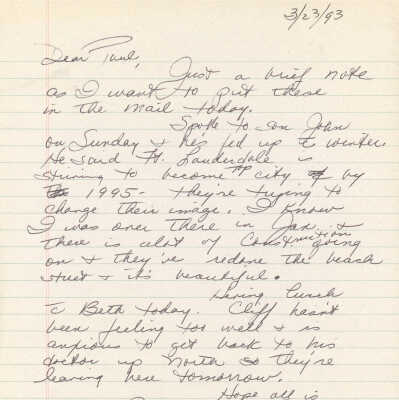 3/23/93
Dear Paul,
Just a brief note
as I want to put these
in the mail today.
Spoke to son John
on Sunday & he's fed up c̄ winter.
He said Ft. Lauderdale is
striving to become #1 city by
1995 - they're trying to
change their image. I know
I was over there in Jan. &
there is alot of construction going
on & they've redone the beach
street & it's beautiful.
Having lunch
c̄ Beth today. Cliff hasn't
been feeling too well & is
anxious to get back to his
doctor up north so they're
leaving here tomorrow.
Hope all is